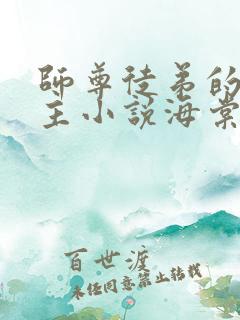 師尊徒弟的
主小說海棠
百世渡
未經同意禁止轉載